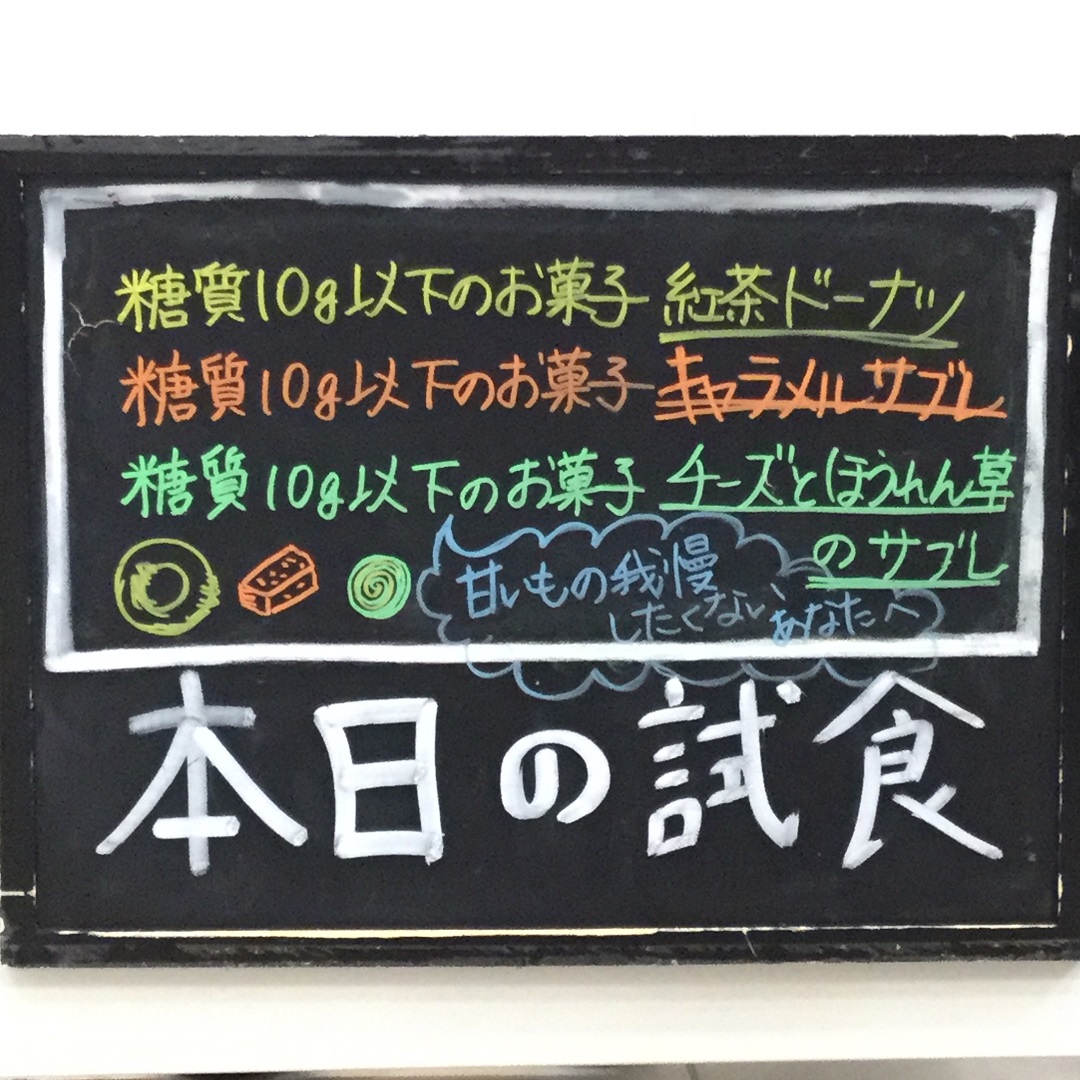 糖質10g以下のお菓子 紅茶ドーナツ
糖質10g以下のお菓子 キャラメルサブレ
糖質10g以下のお菓子 チーズとほうれん草
のサブレ
甘いもの我慢
したくない、あなたへ
本日の試食